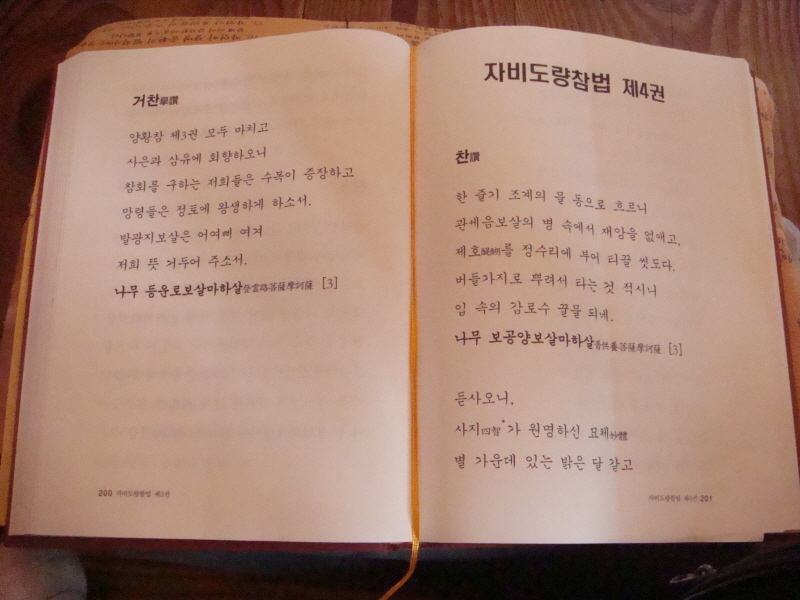 거찬擧讚
양황참 제3권 모두 마치고
사은과 삼유에 회향하오니
참회를 구하는 저희들은 수복이 증장하고
망령들은 정토에 왕생하게 하소서.
발광지보살은 어여삐 여겨
저희 뜻 거두어 주소서.
나무 등운로보살마하살登雲路菩薩摩訶薩 [3]
200 자비도량참법 제3권
자비도량참법 제4권
찬讚
한 줄기 조계의 물 동으로 흐르니
관세음보살의 병 속에서 재앙을 없애고,
제호醍醐를 정수리에 부어 티끌 씻도다.
버들가지로 뿌려서 타는 것 적시니
입 속의 감로수 꿀물 되네.
나무 보공양보살마하살普供養菩薩摩訶薩 [3]
듣사오니,
사지四智*가 원명하신 묘체妙體
별 가운데 있는 밝은 달 같고
자비도량참법 제4권 201